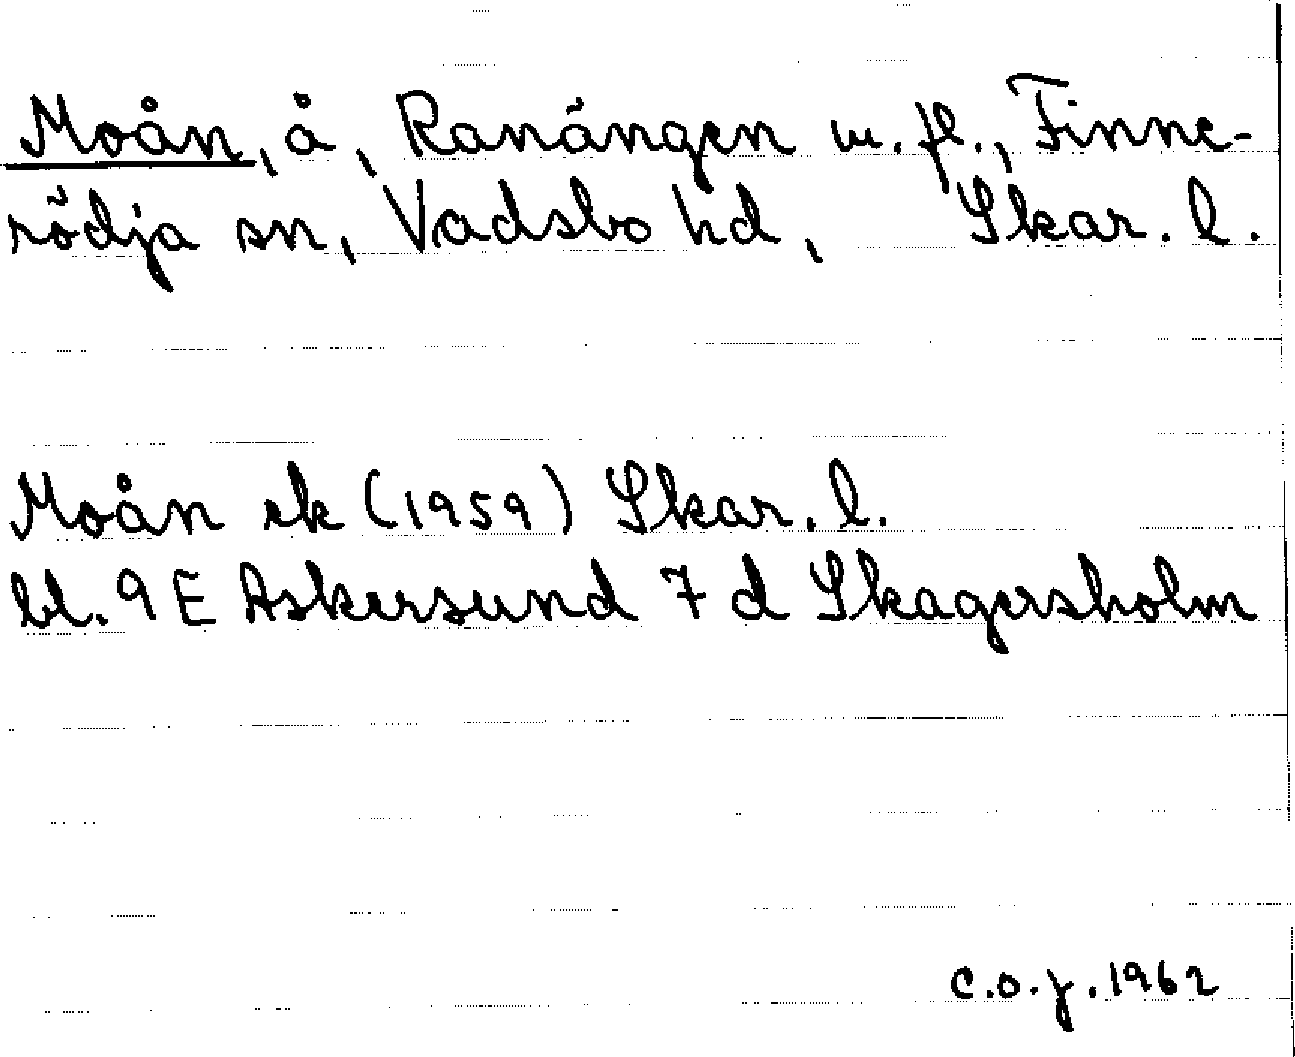 Moån, å, Ranängen m. fl., Finne-
rödja sn, Vadsbo hd, Skar. l.
Moån ek (1959) Skar. l.
bl. 9E Askersund 7 d Skagersholm
C.O.J. 1962